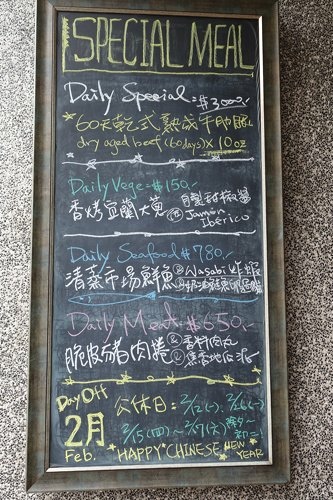 SPECIAL MEAL
Daily Special = $3000.-
60天乾式熟成牛肋眼
dry aged beef (60days) x 10oz
Daily Vege = $150.-
香烤宜蘭大蔥 佐 自製甜椒醬
Jamón
Ibérico
Daily Seafood $780.-
清蒸市場鮮魚 & Wasabi 炸蝦
Daily Meat $650.-
脆皮豬肉捲 & 香料肉丸
Day Off
2月
Feb.
公休日 = 2/12(一)、2/26(一)
2/15(四)~2/17(六) 除夕~初二
*HAPPY*CHINESE NEW YEAR